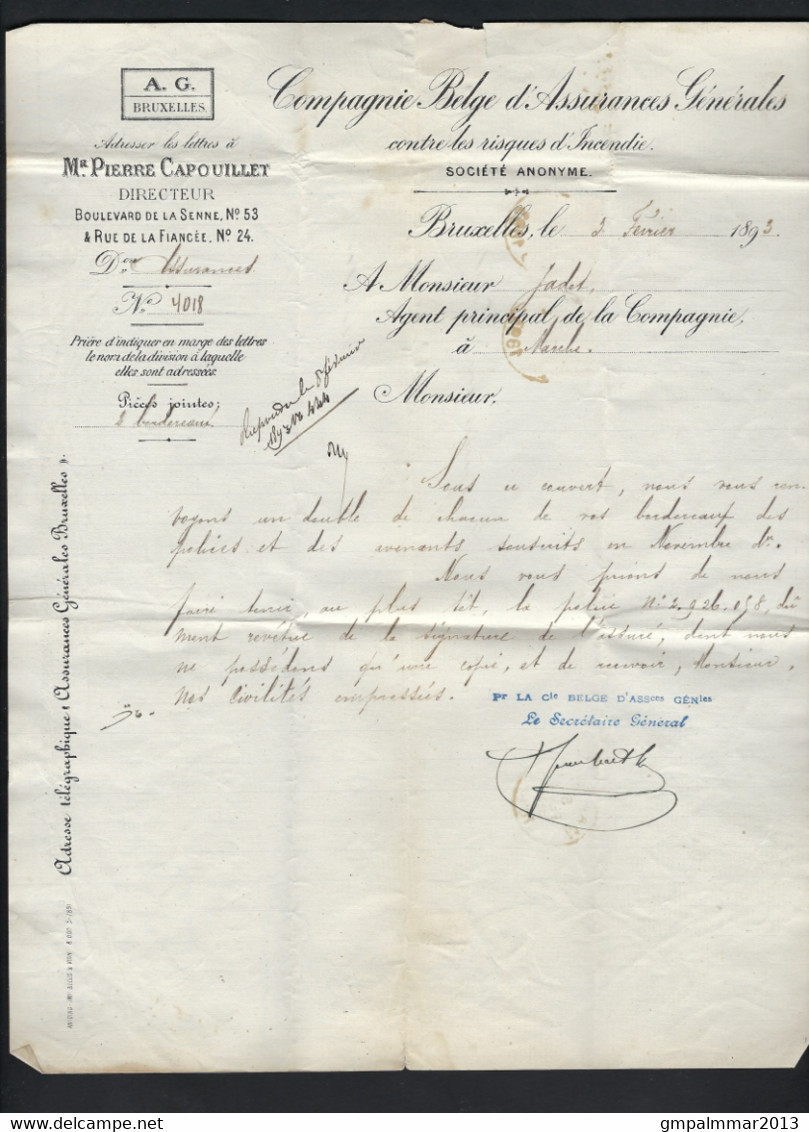 A. G.
BRUXELLES.
Adresser les lettres à
MR. PIERRE CAPOUILLET
DIRECTEUR
BOULEVARD DE LA SENNE, No 53
& RUE DE LA FIANCÉE, No 24.
Don Assurances
No 4018
Prière d'indiquer en marge des lettres
le nom de la division à laquelle
elles sont adressées.
Pièces jointes:
2 bordereaux
Compagnie Belge d'Assurances Générales
contre les risques d'Incendie.
SOCIÉTÉ ANONYME.
Bruxelles, le 3 Février 1893.
A Monsieur Jadot,
Agent principal de la Compagnie,
à Marche.
Monsieur,
Répondu le 8 février
1893 No 444
Sous ce couvert, nous vous ren
voyons un double de chacun de vos bordereaux des
polices et des avenants souscrits en Novembre dr.
Nous vous prions de nous
faire tenir, au plus tôt, la police No 2.926.058, dû
ment revêtue de la signature de l'assuré, dont nous
ne possédons qu'une copie, et de recevoir, Monsieur,
nos civilités empressées.
Pr LA Cie BELGE D'ASSces GÉNles
Le Secrétaire Général
Adresse télégraphique « Assurances Générales Bruxelles ».
delcampe.net
gmpalmmar2013